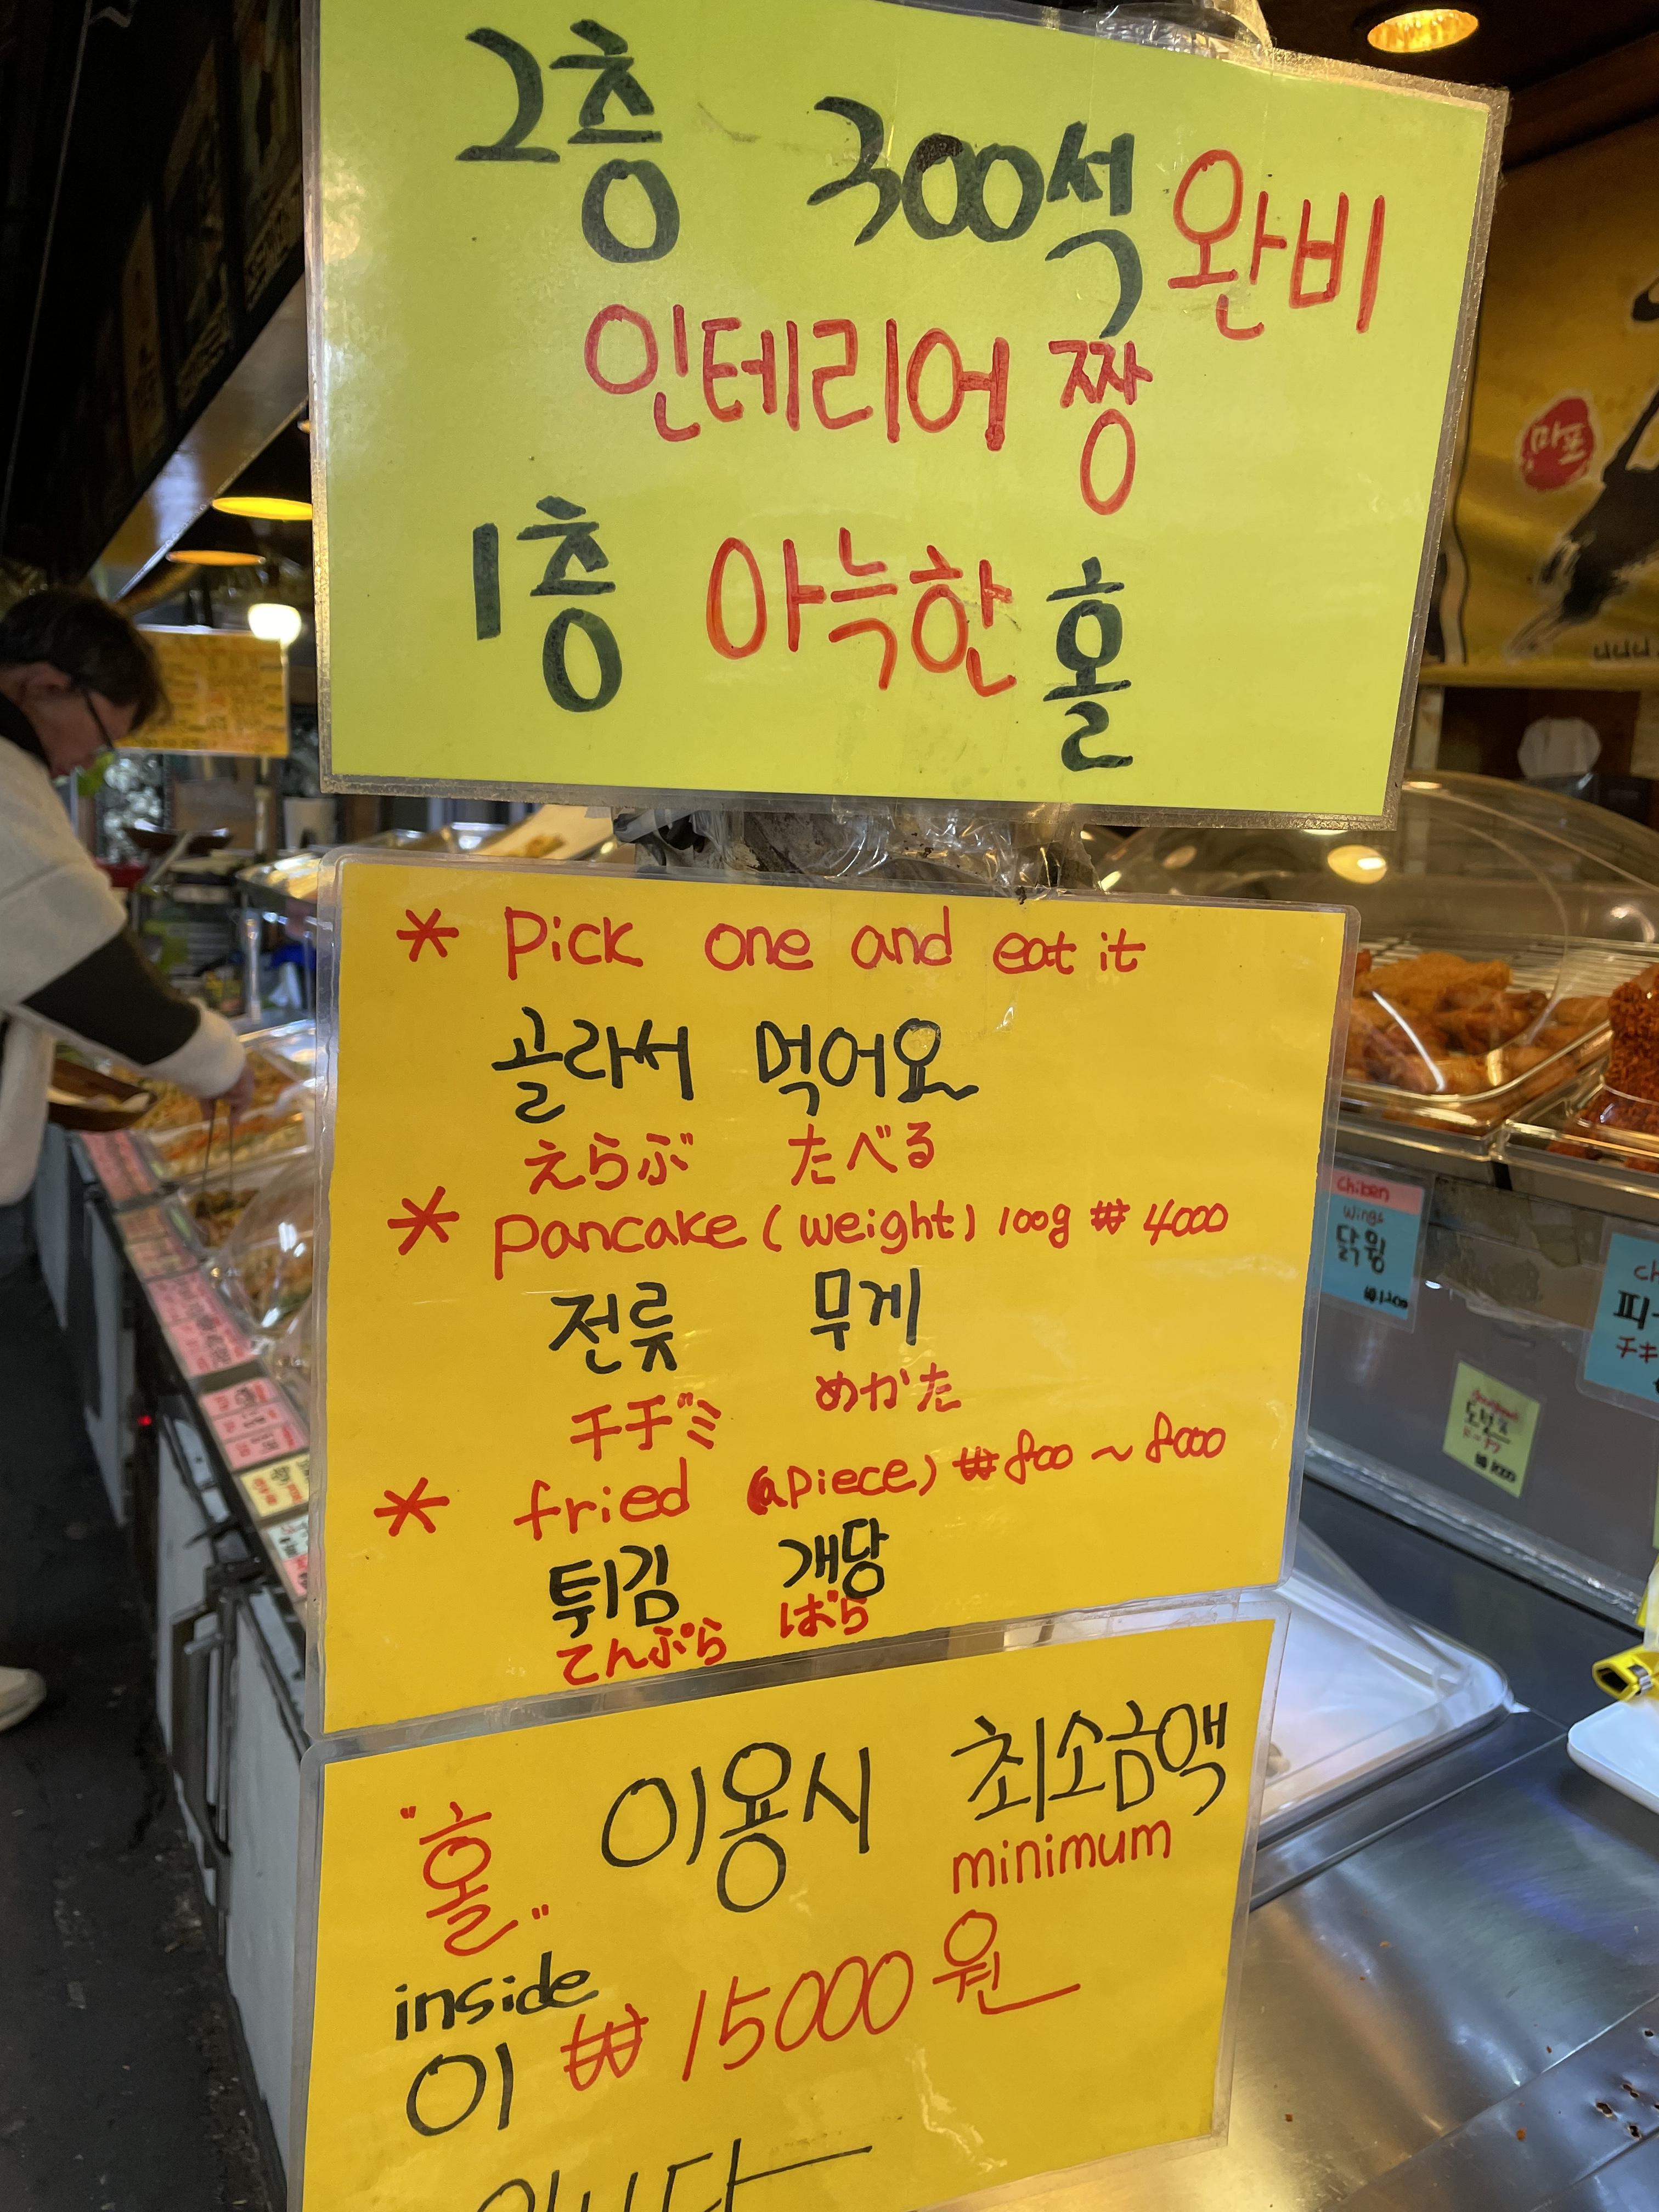 2층 300석 완비
인테리어 짱
1층 아늑한 홀
* Pick one and eat it
골라서 먹어요
えらぶ たべる
* pancake (weight) 100g ₩ 4000
전류 무게
チヂミ めかた
* fried (a piece) ₩800 ~ 8000
튀김 개당
てんぷら ばら
"홀" 이용시 최소금액
inside minimum
이 ₩ 15000원
입니다
마포
chiken
wings
닭윙
₩1200